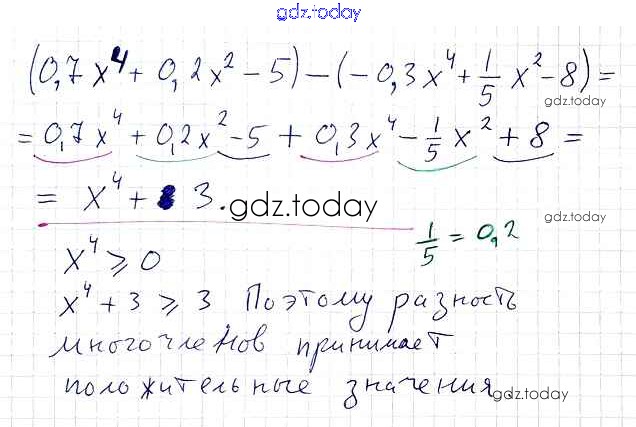 gdz.today
(0,7x⁴ + 0,2x² - 5) - (-0,3x⁴ + 1/5 x² - 8) =
gdz.today
= 0,7x⁴ + 0,2x² - 5 + 0,3x⁴ - 1/5 x² + 8 =
= x⁴ + 3.
gdz.today
gdz.today
1/5 = 0,2
x⁴ ⩾ 0
x⁴ + 3 ⩾ 3 Поэтому разность
многочленов принимает
положительные значения.
gdz.today